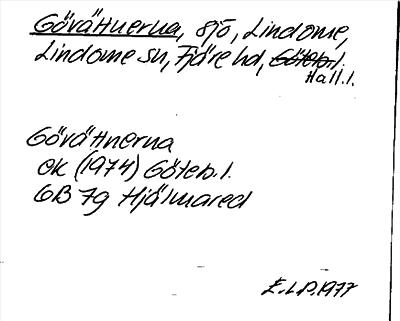 Gövättnerna, sjö, Lindome,
Lindome sn, Fjäre hd, Göteb.l.
Hall.l.
Gövättnerna
ek (1974) Göteb.l.
6B 7g Hjälmared
E.L.P. 1977